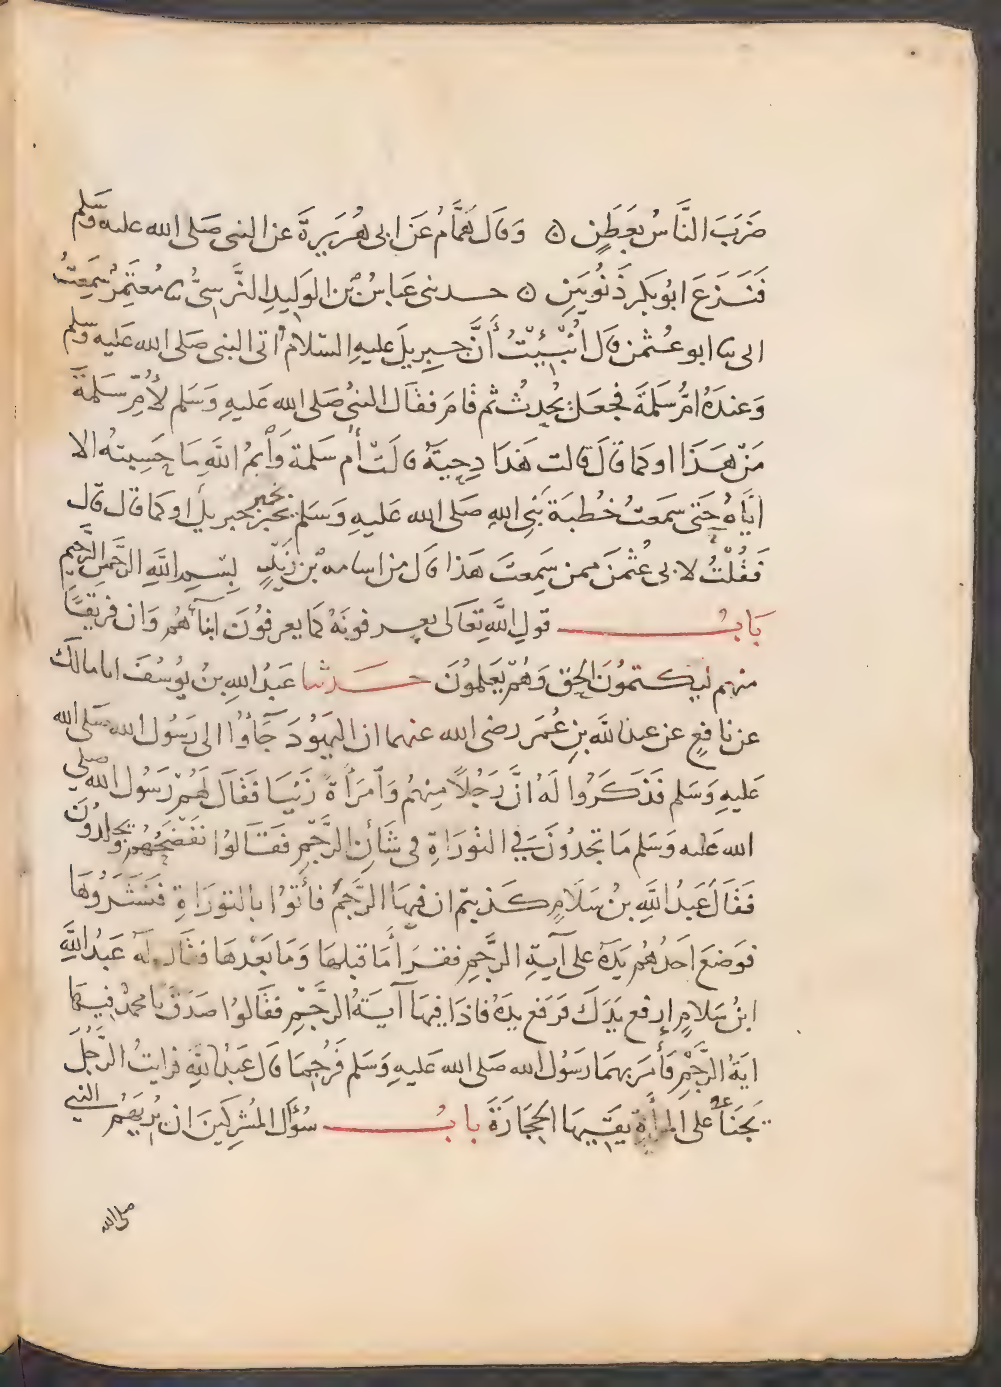 ضَرَبَ النَّاسُ بِعَطَنٍ ۞ وَقَال هَمَّامُ عَنَ ابى هُرَيرَةَ عن النبى صَلى الله عليه وَسَلم
فَنَزَعَ ابُوبكرٍ ذَنُوبَينِ ۞ حدثنى عَباسُ بْن الوَلِيدِ النَّرسِىُّ نا مُعتَمِرُ سَمِعْتُ
ابى نا ابو عُثمن قَال اُنْبِئْتُ أَنَّ جِبرِيلَ عَليهِ السّلام اتى النبى صَلى الله عَليهِ وسَلم
وَعندَهُ امُّ سَلَمَةَ فجعَلَ يُحدِثُ ثم قامَ فقَال النبىُّ صَلى الله عَليهِ وَسَلم لأُمِّ سَلَمَةَ
مَنْ هَذَا اوكمَا قَالَ قالت هَذَا دِحِيَةُ قالَتْ أُم سَلمةَ وَأَيمُ اللهِ مَا حَسِبتهُ الا
ايَّاهُ حَتى سَمعتُ خُطبَةَ نَبِى اللهِ صَلى الله عَليهِ وَسَلم بخبر جبريل او كمَا قال قال
فَقُلْتُ لابى عُثمنَ ممن سَمِعتَ هَذا قال من اسامه بْن زَيْدٍ بِسْمِ اللَّهِ الرَّحْمنِ الرَّحِيمِ
بَابُ قولِ اللهِ تعَالى يعرفونَهُ كمَا يعرفوُنَ ابنآءَهُم وَان فريقًا
منهم ليكتموُنَ الحق وَهُمْ يَعلمُونَ حدثنا عَبدُ الله بنُ يوُسُفَ انا مالك
عن نافعٍ عن عبد الله بنِ عُمَرَ رضى الله عنهما ان اليَهوُدَ جَآؤُا الى رَسُول الله صَلى الله
عَليهِ وَسَلم فَذكَرُوا لَهُ انَّ رَجُلاً مِنهُم وَامرَأةً زَنَيَا فقَالَ لَهُمْ رَسُول الله صلى
الله عَليه وَسَلم مَا تجدُونَ فِى التوُرَاةِ فى شَأنِ الرَّجْمِ فقَالُوا نفْضَحُهُم ويجلدُونَ
فَقَالَ عَبدُ اللَّهِ بن سَلاَمٍ كَذبتم ان فيهَا الرَّجمُ فأتوُا بالتورَاةِ فنَشَرُوهَا
فوَضعَ احَدُهُم يَدَهُ على آيةِ الرَّجمِ فقرَأ مَا قبلهَا وَمَا بَعْدهَا فقَال له عَبدُ اللَّهِ
ابنُ سَلامٍ ارفع يَدَكَ فرَفع يدَهُ فاذَا فيهَا آيَةُ الرَّجْمِ فقَالوُا صَدَقَ يا محمدُ فيهَا
ايَةُ الرَّجْمِ فأمَرَ بهمَا رَسُول الله صَلى الله عَليهِ وَسَلم فَرُجِمَا قالَ عَبدُ اللهِ فرايتُ الرَّجُلَ
يَجنَأُ على المرأةِ يَقِيهَا الحِجَارَةَ بابُ سُؤَالِ المُشركينَ ان يُريَهُم النبى
صلى الله